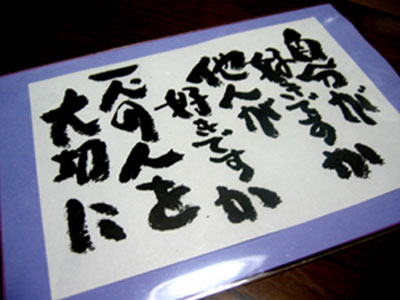 自分が
好きですか
他人が
好きですか
一人の人を
大切に